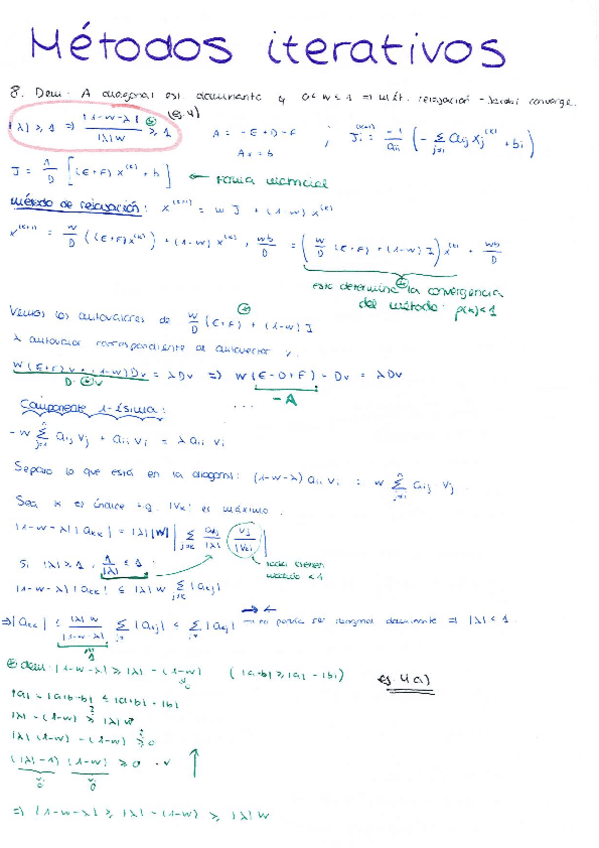 Métodos iterativos
8. Dem. A diagonal est. dominante y 0<w<1 ⇒ mét. relajación-Jacobi converge.
|λ| ≥ 1 ⇒ |1-w-λ| / |λ|w ≥ 1 (ej. 4) A = -E+D-F ; J_i^(k+1) = -1/a_ii (-Σ_{j≠i} a_ij x_j^(k) + b_i)
Ax = b
J = 1/D [(E+F)x^(k) + b] ← forma matricial
método de relajación: x^(k+1) = w J + (1-w) x^(k)
x^(k+1) = w/D ((E+F)x^(k)) + (1-w) x^(k) + wb/D = (w/D (E+F) + (1-w) I) x^(k) + wb/D
este determina la convergencia
del método: ρ(*)<1
Vemos los autovalores de w/D (E+F) + (1-w) I
λ autovalor correspondiente al autovector v.
w(E+F)v + (1-w)Dv = λDv ⇒ w(E-D+F) + Dv = λDv
D·*v -A
Componente i-ésima: ...
-w Σ_{j=1}^n a_ij v_j + a_ii v_i = λ a_ii v_i
Separo lo que está en la diagonal: (1-w-λ) a_ii v_i = w Σ_{j≠i}^n a_ij v_j
Sea k el índice t.q. |v_k| es máximo.
|1-w-λ| |a_kk| = |λ| |w| |Σ_{j≠k} a_kj/|λ| v_j/|v_k||
Si |λ| ≥ 1, 1/|λ| ≤ 1
módulo <1
|1-w-λ| |a_kk| ≤ |λ| w Σ_{j≠k} |a_kj|
⇒ |a_kk| ≤ |λ|w / |1-w-λ| Σ |a_kj| ≤ Σ |a_kj| →← no podría ser diagonal dominante ⇒ |λ| < 1.
* dem: |1-w-λ| ≥ |λ| - (1-w) (|a-b| ≥ |a| - |b|) ej. 4a)
|λ| - (1-w) ≥ |λ| w
|λ| (1-w) - (1-w) ≥ 0
(|λ|-1) (1-w) ≥ 0 ↑
⇒ |1-w-λ| ≥ |λ| - (1-w) ≥ |λ| w